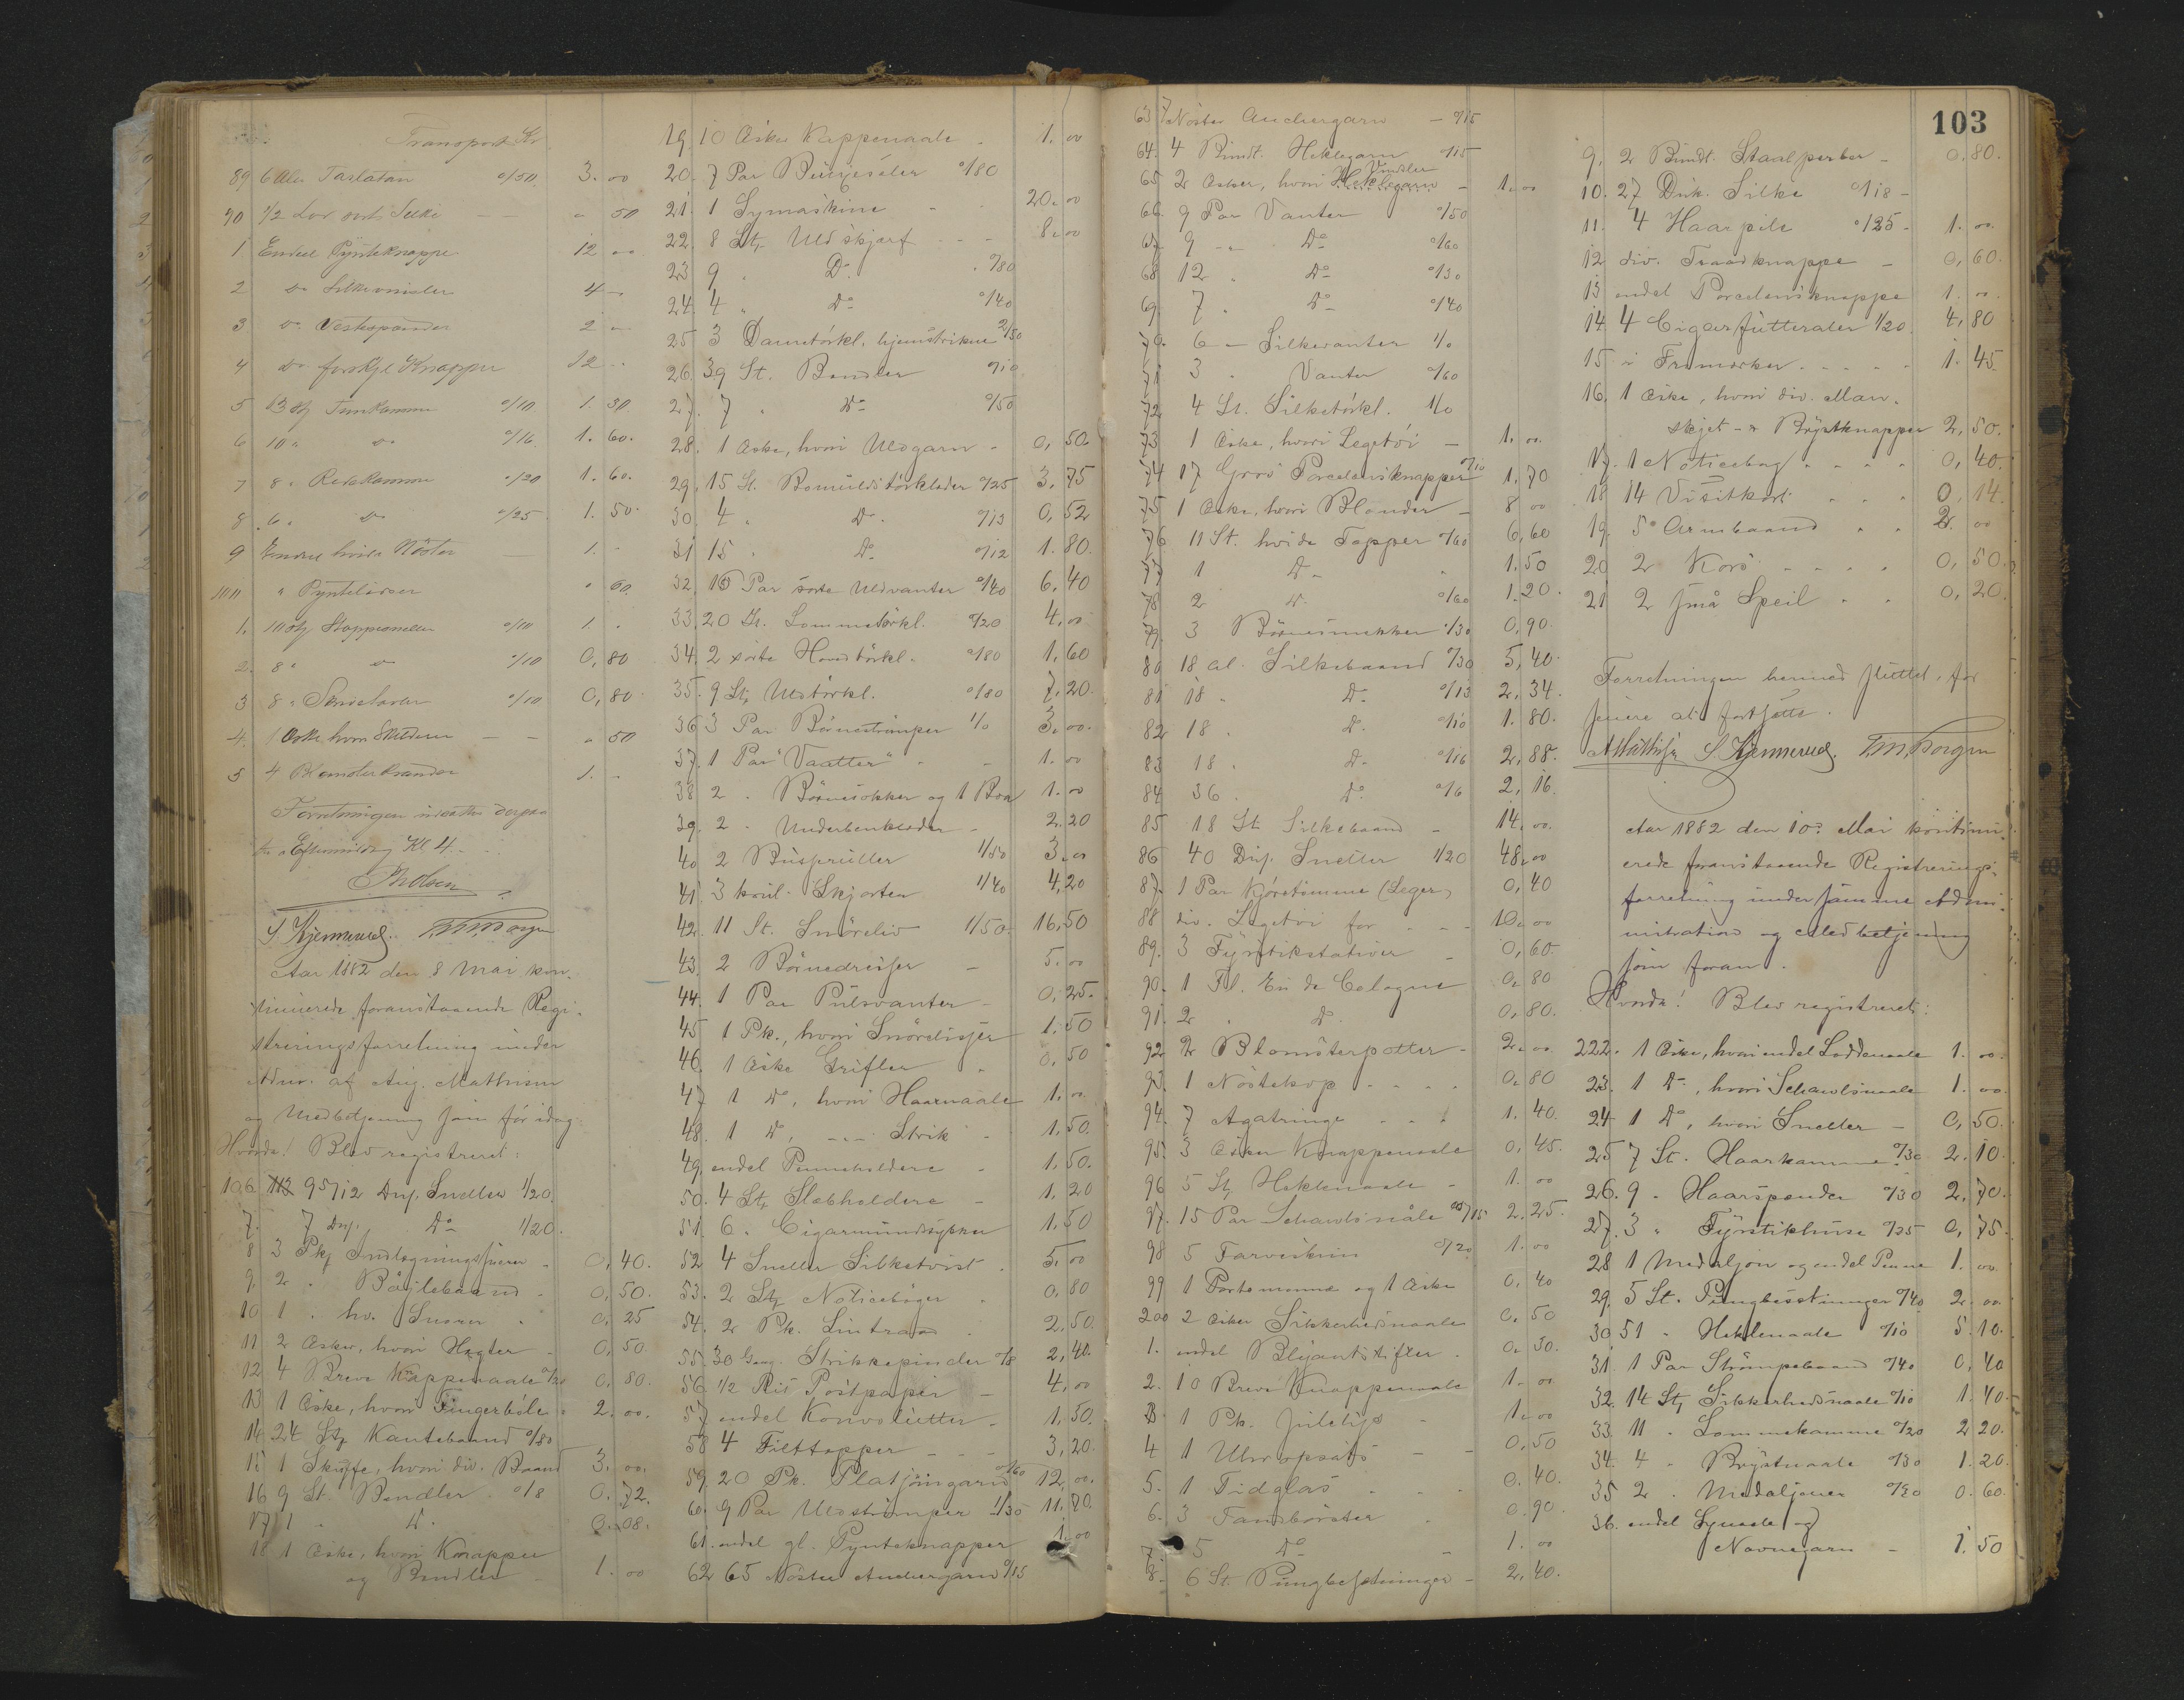 Transport Kr
89 6 Alen Tarlatan 0/50 3. 00
90 1/2 Lod sort Silke - " 50
1 Endeel Pynteknappe 12 00
2 do Silkesnoler 4 -
3 do Vestespænder 2 -
4 do forskjl Knapper 12 -
5 13 stj Timkamme 0/10 1. 30
6 10 " do 0/16 1. 60.
7 8 " Redekamme 0/20 1. 60.
8 6 " do 0/25 1. 50.
9 Endeel hvide Nöster - 1. -
" Pyntelidser " 60
1. 10 stj Stoppeneller 0/10 1. "
2. 8 " do 0/10 0, 80
3 8 " 0/10 0, 80
4. 1 Æske hvori - - " 50
5 4 Blomsterkrandse 1. -
Forretningen udsattes derpaa
til Eftermiddag Kl 4.
S. Kjennerud. T. M. Borgen
Aar 1882 den 8 Mai kon-
tinuerede foranstaaende Regi-
streringsforretning under
Adm. af Aug. Mathisen
og Medbetjening som för idag:
Hvorda! Blev registreret:
106 95 7/12 Dus. Sneller 1/20.
7. 7 Dus. Do 1/20.
8 3 Pkj Indlægningssnerer - 0, 40.
9. 2 " Böjlebaand - 0, 50.
10 1 " hv. Snorer " 0, 25
11 2 Æsker, hvori Hegter - 0, 50.
12 4 Breve Knappenaale 0/20 0, 80.
13 1 Æske, hvori Fingerböle " 2. 00.
14 24 Stj Kantebaand 0/80
15 1 Skuffe, hvori div. Baand 3. 00.
16 9 St. Bendler 0/8 0. 72.
17 1 " Do 0. 08.
18 1 Æske, hvori Knapper
og Bendler - 1. 00
19. 10 Æsker Knappenaale - 1. 00
20. 7 Par Buxeseler 0/80
21. 1 Symaskine - 20. 00
22. 8 Stj. Uldskjærf - - 8. 00
23 9 " Do " 0/80
24. 4 " Do 0/40
25 3 Dametörkl. hjemstrikne 2/50
26. 39 St. Bendler 0/10
27. 7 " Do 0/50
28. 1 Æske, hvori Uldgarn - 0, 50.
29. 15 St. Bomuldstörklæder 0/25 3, 75
30. 4 " Do. 0/13 0, 52
31 15 " Do 0/12 1. 80.
32. 16 Par sorte Uldvanter 0/40 6, 40
33. 20 St. Lommetörkl. 0/20 4, 00
34. 2 sorte Hovedtörkl. 0/80 1, 60
35. 9 Stj Uldtörkl. 0/80 7, 20.
36 3 Par Börneströmper 1/0 3. 00.
37. 1 Par "Vaatter" - 1. 00
38 2 " Börnesokker og 1 Boa 1. 00
39. 2 " Underbenklæder - 2. 20
40 2 Busseruller 1/50 3. 00
41. 3 koul. Skjorter 1/40 4, 20
42. 11 St. Snöreliv 1/50. 16, 50
43. 2 Börnedrester - 5. 00
44. 1 Par Pulsvanter - 0, 25.
45 1 Pk., hvori Snörelidser 1. 50
46. 1 Æske Grifler " 0, 50
47 1 Do, hvori Haarnaale 1. 00.
48. 1 Do, - " - Strik - 1. 50.
49. endel Penneholdere - 1. 50.
50. 4 Stj Slæbholdere - 1. 20
51. 6. " Cigarmundstykker 1. 50
52 4 Sneller Silketvist " 5. 00
53. 2 Stj Noticeböger " 0, 80
54. 2 Pk. Lintraad " 2. 50.
55. 30 Gang. Strikkepinder 0/8 2, 40.
56. 1/2 Ris Postpapir - 4, 00
57 endel Konvolutter - 1. 50.
58 4 Filttopper - - - 3, 20.
59. 20 Pk. Platjöingarn 0/60 12, 00.
60. 9 Par Uldströmper 1/30 11. 70.
61. endel gl. Pynteknapper 1. 00
62 65 Nöster Anchergarn 0/15
63 7 Nöster Anchergarn - 0/15
64. 4 Bundt. Heklegarn 0/15
65 2 Æsker, hvori Heklegarn - 1. 00
66. 9 Par Vanter 0/50
67. 9 - " - Do 0/60
68 12 " Do 0/30
69. 7 " Do 0/40
70. 6 - Silkevanter 1/0
71 3 " Vanter 0/60
72 4 St. Silketörkl. 1/0
73 1 Æske, hvori Legetöi - 1. 00.
74 17 Gros Porcelænsknapper 0/10 1, 70
75 1 Æske, hvori Blonder - 8 00
76 11 St. hvide Topper 0/60 6, 60
77 1 Do " 1. 50
78 2 Do 0/60 1. 20.
79. 3 Börnesmekker 0/30 0, 90.
80 18 al. Silkebaand 0/30 5, 40.
81 18 " Do 0/13 2, 34.
82 18 " Do 0/10 1. 80.
83 18 " Do 0/16 2, 88.
84 36 " Do 0/6 2, 16.
85 18 St Silkebaand - 14, 00.
86 40 Dus. Sneller 1/20 48. 00
87. 1 Par Kjöretömme (Leger) 0, 40
88 div. Legetöi for - - - 10. 00
89. 3 Fyrstikstativer - 0, 60.
90. 1 Fl. Eu de Cologne 0, 80
91. 2 " Do 0, 80.
92 2 Blomsterpotter - 2. 00
93. 1 Nöstekop - - - 0. 80
94. 7 Agatringe - - - 1. 40.
95. 3 Æsker Knappenaale 0, 45.
96 5 Stj Heklenaale - 1. 00
97. 15 Par Schawlsnåle 0/15 2. 25.
98 5 Farveskrin 0/20 1. 00
99 1 Portemonnæ og 1 Æske 0, 40
200 2 Æsker Sikkerhedsnaale 0, 50
1. endel Blyantstifter - 0. 50.
2. 10 Breve Knappenaale 1. 00
3. 1 Pk. Julelys - 1. 00
4 1 Uhropsats - 0, 50
5. 1 Tidglas - 0. 40.
6. 3 Tandbörster 0. 90.
7. 5 Do - 1. 00
8. 6 St. Pungbesætninger - 2, 40.
103
9. 2 Bundt. Staalperler - 0, 80.
10. 27 Duk. Silke 0/18 -
11. 4 Haarpile 0/25 - 1. 00.
12 div. Traadknappe - 0, 60.
13 endel Porcelænsknappe 1. 00.
14 4 Cigarfutteraler 1/20. 4, 80
15 " Frimærker - - - 1. 45
16. 1 Æske, hvori div. Man-
skjet - & Brystknapper 2, 50.
17. 1 Noticebog - - - 0, 40.
18 14 Visitkort - - - 0, 14.
19. 5 Armbaand " " 2. 00
20 2 Kors - - - - 0, 50.
21 2 små Speil " " 0, 20.
Forretningen hermed sluttet, for
senere at fortsætte.
AMathisen S. Kjennerud. T. M. Borgen
Aar 1882 den 10de Mai kontinu-
erede foranstaaende Registrerings-
forretning under samme Admi-
nistration og Medbetjening
som foran.
Hvorda! Blev registreret:
222. 1 Æske, hvori endel Loddenaale 1. 00.
23. 1 Do, hvori Schawlsnaale 1. 00.
24 1 Do, hvori Sneller - 0, 50.
25 7 St. Haarkamme 0/30 2. 10.
26. 9 - Haarspænder 0/30 2, 70.
27. 3 " Fyrstikhuse 0/25 0, 75.
28 1 Medaljon og endel Penne 1. 00.
29. 5 St. Pungbesætninger 0/40 2. 00.
30 51 " Heklenaale 0/10 5. 10.
31. 1 Par Strömpebaand 0/40 0, 40
32. 14 Stj Sikkerhedsnaale 0/10 1. 40.
33. 11 " Lommekamme 0/20 2 20.
34. 4 " Brystnaale 0/30 1. 20.
35 2 " Medaljoner 0/30 0. 60.
36. endel Synaale og
Navnegarn - 1. 50